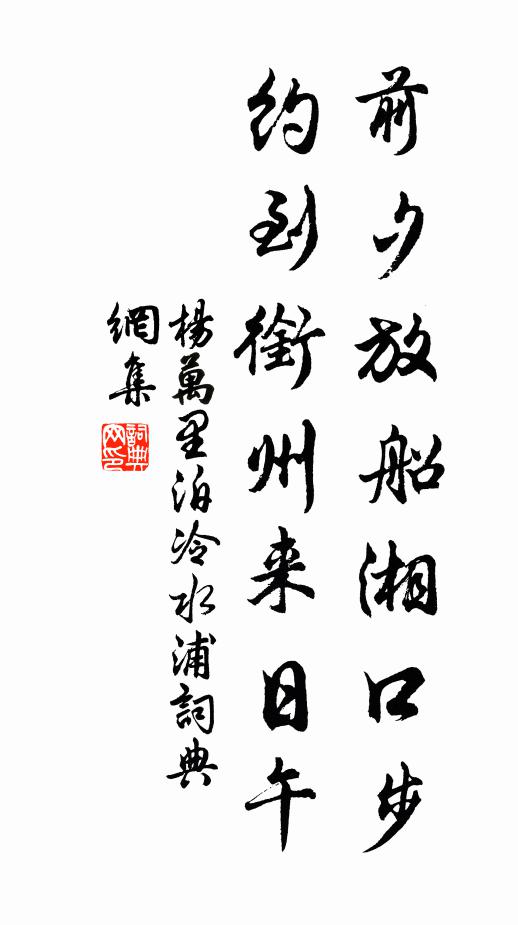 前夕放船湘口步
約到銜州来日午
楊萬里泊冷水浦詞典
網集
詞典网印